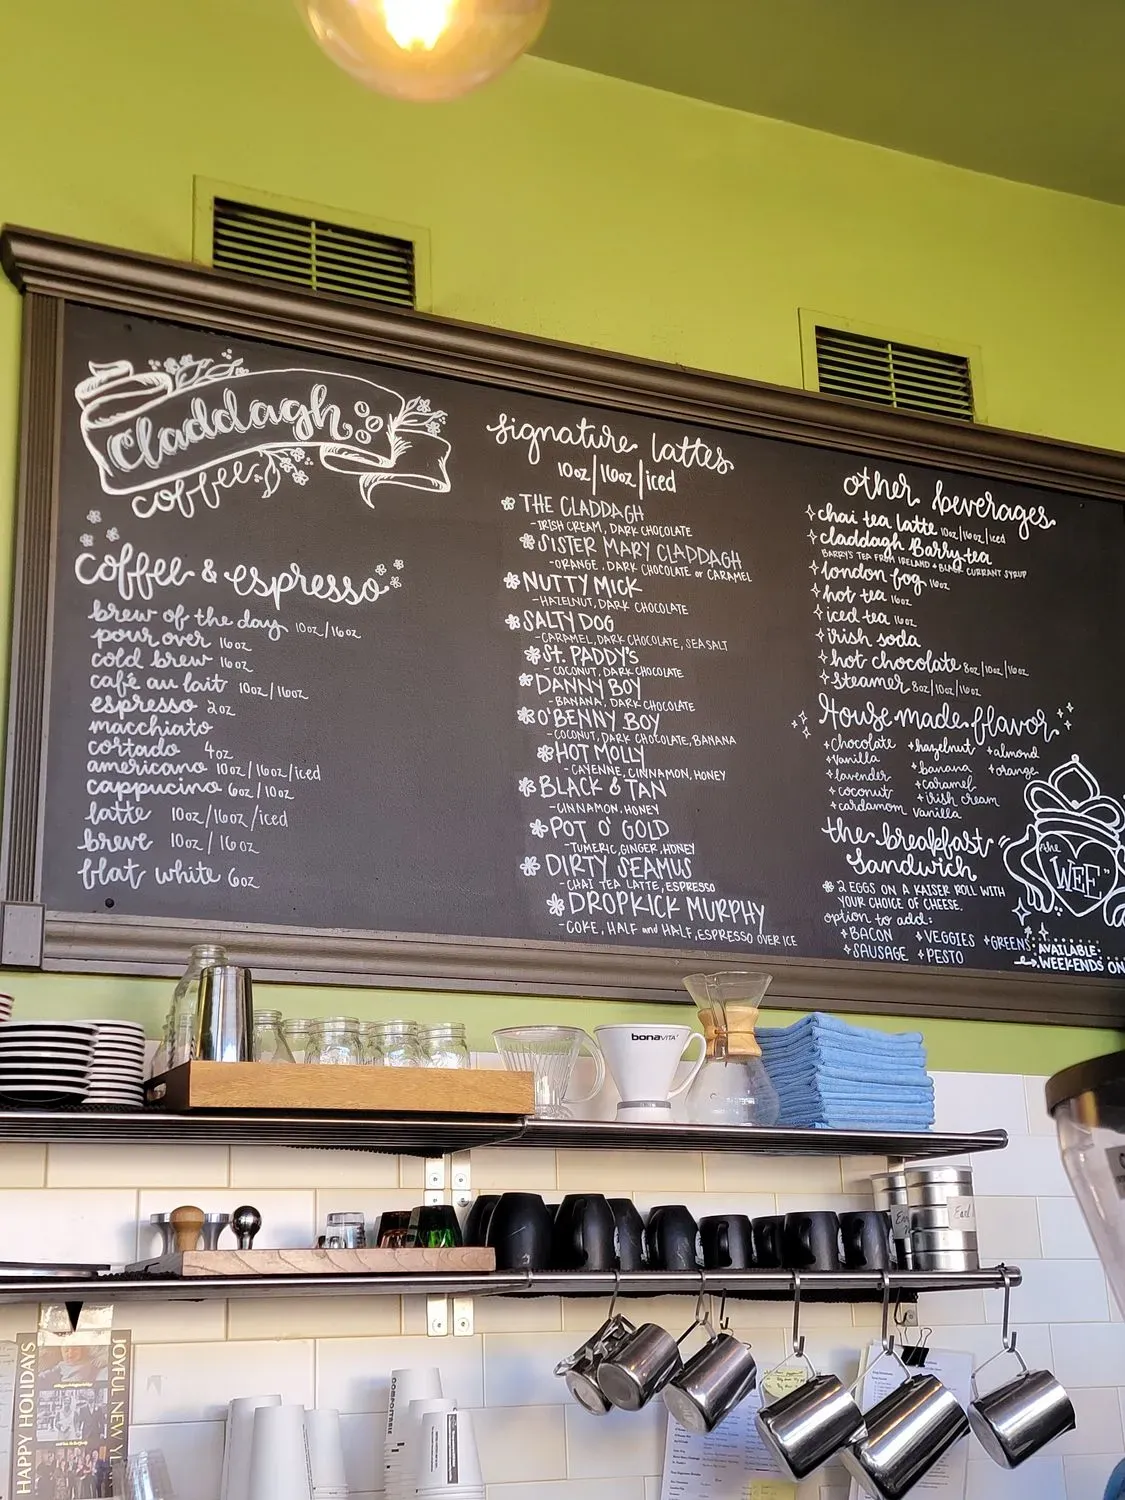 Claddagh
coffee
coffee & espresso
brew of the day 10oz/16oz
pour over 16oz
cold brew 16oz
café au lait 10oz/16oz
espresso 2oz
macchiato
cortado 4oz
americano 10oz/16oz/iced
cappucino 6oz/10oz
latte 10oz/16oz/iced
breve 10oz/16oz
flat white 6oz
signature lattes
10oz/16oz/iced
THE CLADDAGH
-IRISH CREAM, DARK CHOCOLATE
SISTER MARY CLADDAGH
-ORANGE, DARK CHOCOLATE or CARAMEL
NUTTY MICK
-HAZELNUT, DARK CHOCOLATE
SALTY DOG
-CARAMEL, DARK CHOCOLATE, SEA SALT
ST. PADDY'S
-COCONUT, DARK CHOCOLATE
DANNY BOY
-BANANA, DARK CHOCOLATE
O'BENNY BOY
-COCONUT, DARK CHOCOLATE, BANANA
HOT MOLLY
-CAYENNE, CINNAMON, HONEY
BLACK & TAN
-CINNAMON, HONEY
POT O' GOLD
-TUMERIC, GINGER, HONEY
DIRTY SEAMUS
-CHAI TEA LATTE, ESPRESSO
DROPKICK MURPHY
-COKE, HALF and HALF, ESPRESSO OVER ICE
other beverages
chai tea latte 10oz/16oz/iced
claddagh Barry tea
BARRY'S TEA FROM IRELAND + BLACK CURRANT SYRUP
london fog 16oz
hot tea 16oz
iced tea 16oz
irish soda
hot chocolate 8oz/10oz/16oz
steamer 8oz/10oz/16oz
House made flavor
+chocolate +hazelnut +almond
+vanilla +banana +orange
+lavender +caramel
+coconut +irish cream
+cardamom vanilla
the breakfast
sandwich
2 EGGS ON A KAISER ROLL WITH
YOUR CHOICE OF CHEESE.
option to add:
+BACON +VEGGIES +GREENS
+SAUSAGE +PESTO
"the
WEE"
AVAILABLE
WEEKENDS ON
bonaVITA
Earl
HAPPY HOLIDAYS
JOYFUL NEW